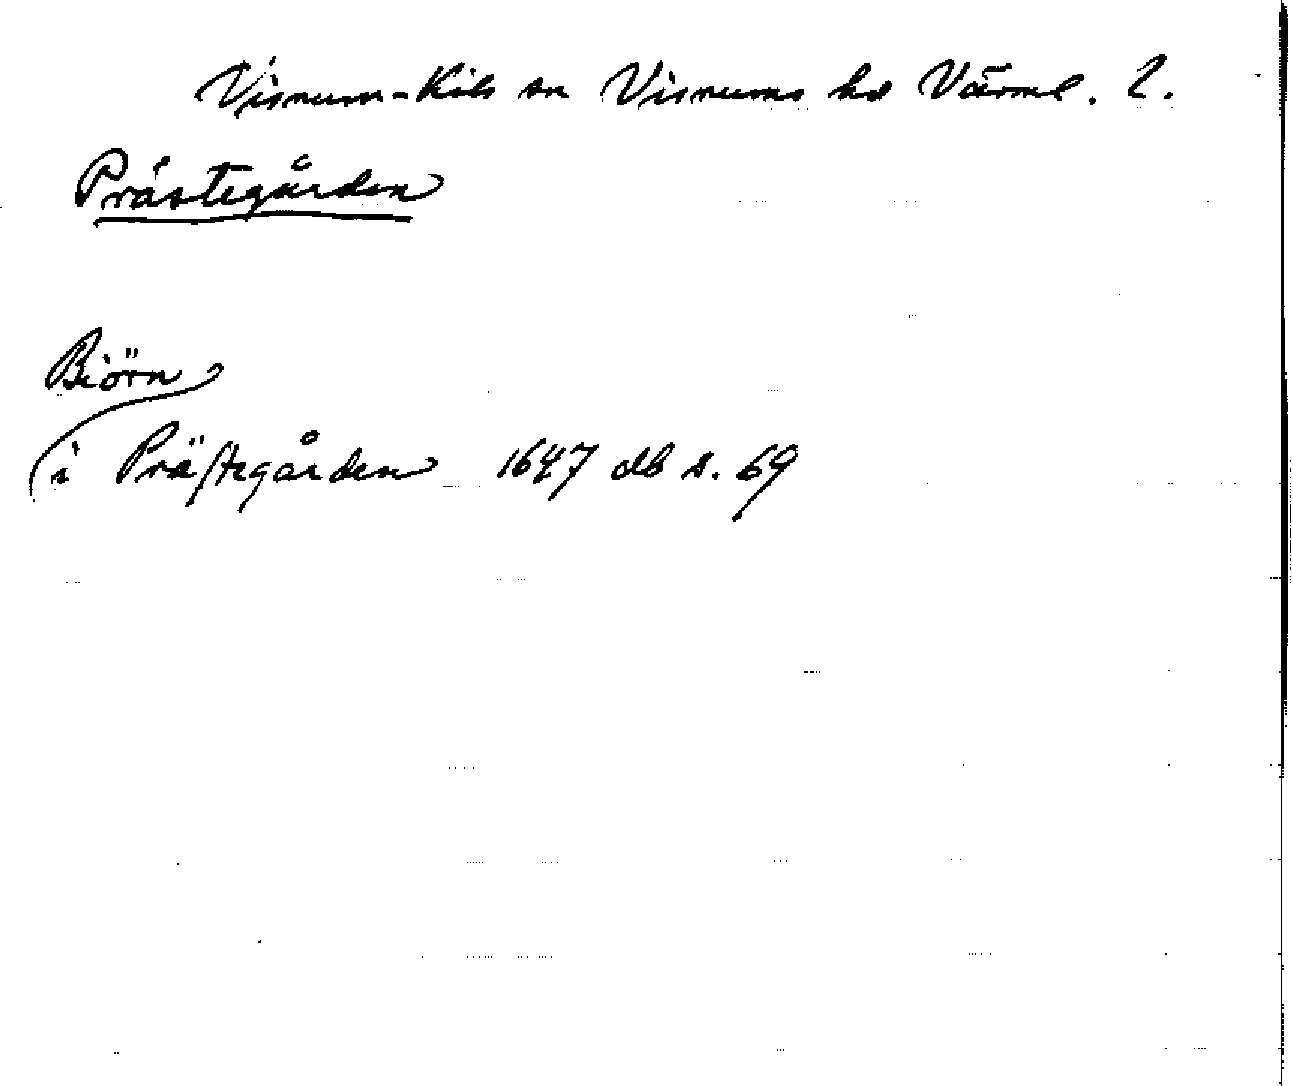 Visnum-Kils sn Visnums hd Värml. l.
Prästegården
Biörn
i Präſtegården 1647 db s. 69